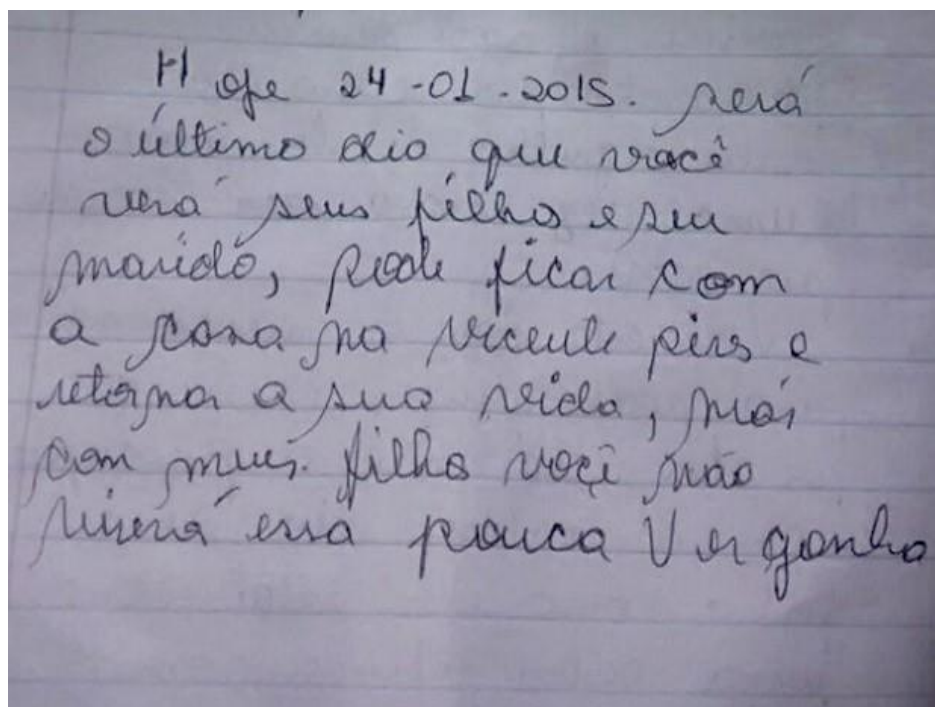 Hoje 24-01-2015. será
o último dia que você
verá seus filhos e seu
marido, pode ficar com
a casa na vicente pires e
retorna a sua vida, mas
com meus. filhos você não
viverá essa pouca Vergonha